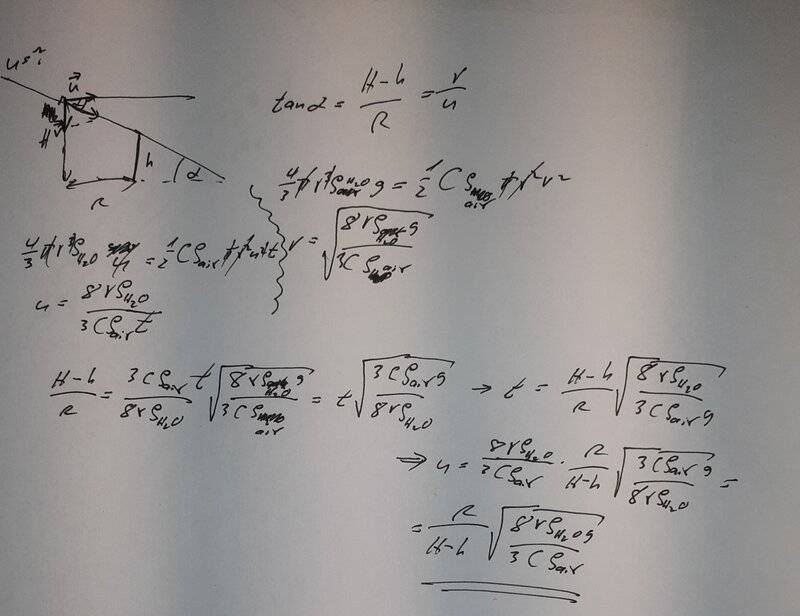 u = ?
u
H
v
R
h
α
tan α = (H-h)/R = v/u
4/3 π r³ ρ_H₂O g = 1/2 C ρ_air π r² v²
v = √(8 r ρ_H₂O g / 3 C ρ_air)
4/3 π r³ ρ_H₂O u = 1/2 C ρ_air π r² u² t
u = 8 r ρ_H₂O / 3 C ρ_air t
(H-h)/R = (3 C ρ_air / 8 r ρ_H₂O) t √(8 r ρ_H₂O g / 3 C ρ_air) = t √(3 C ρ_air g / 8 r ρ_H₂O) → t = (H-h)/R √(8 r ρ_H₂O / 3 C ρ_air g)
⇒ u = (8 r ρ_H₂O / 3 C ρ_air) · R/(H-h) √(3 C ρ_air g / 8 r ρ_H₂O) =
= R/(H-h) √(8 r ρ_H₂O g / 3 C ρ_air)